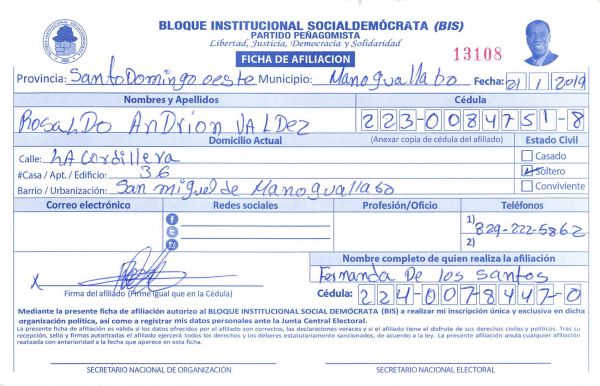 BLOQUE INSTITUCIONAL SOCIALDEMÓCRATA (BIS)
PARTIDO PEÑAGOMISTA
Libertad, Justicia, Democracia y Solidaridad
FICHA DE AFILIACION
13108
Provincia: Santo Domingo oeste Municipio: Manoguallabo Fecha: 21 1 2019
Nombres y Apellidos Cédula
Rosaldo Andrion Valdez 223-0084751-8
Domicilio Actual (Anexar copia de cédula del afiliado) Estado Civil
Calle: LA Cordillera Casado
#Casa / Apt. / Edificio: 36 Soltero
Barrio / Urbanización: San miguel de Manoguallabo Conviviente
Correo electrónico Redes sociales Profesión/Oficio Teléfonos
1) 829-222-5862
2)
Nombre completo de quien realiza la afiliación
Fernanda De los Santos
x
Firma del afiliado (Firme igual que en la Cédula) Cédula: 224-0078447-0
Mediante la presente ficha de afiliación autorizo al BLOQUE INSTITUCIONAL SOCIAL DEMÓCRATA (BIS) a realizar mi inscripción única y exclusiva en dicha
organización política, así como a registrar mis datos personales ante la Junta Central Electoral.
La presente ficha de afiliación es válida si los datos ofrecidos por el afiliado son correctos, las declaraciones veraces y si el afiliado tiene el disfrute de sus derechos civiles y políticos. Tras su
recepción, sello y firmas autorizadas el afiliado ejercerá todos los derechos y los deberes estatutariamente sancionados, de acuerdo a la ley. La presente afiliación anula cualquier afiliación
realizada con anterioridad a la fecha que aparece en esta ficha.
SECRETARIO NACIONAL DE ORGANIZACIÓN SECRETARIO NACIONAL ELECTORAL